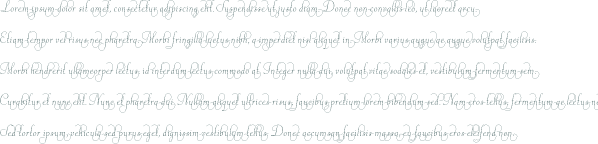 Lorem ipsum dolor sit amet, consectetur adipiscing elit. Suspendisse ut justo diam. Donec non convallis leo, ut laoreet arcu.
Etiam tempor vel risus nec pharetra. Morbi fringilla luctus nibh, a imperdiet nisi aliquet in. Morbi varius augue ac augue volutpat facilisis.
Morbi hendrerit ullamcorper lectus, id interdum lectus commodo at. Integer nulla dui, volutpat vitae sodales et, vestibulum fermentum sem.
Curabitur et nunc elit. Nunc et pharetra dui. Nullam aliquet ultrices risus, faucibus pretium lorem bibendum sed. Nam eros tellus, fermentum ac lectus
Sed tortor ipsum, vehicula sed purus eget, dignissim vestibulum tellus. Donec accumsan facilisis massa, eu faucibus eros eleifend non.